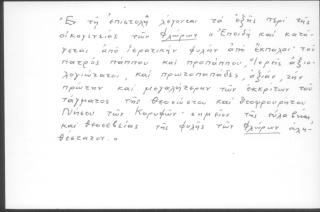 "Ἐν τῇ ἐπιστολῇ λέγονται τὰ ἑξῆς περὶ τῆς
οἰκογενείας τῶν Φλώρων "Ἐπειδὴ καὶ κατά-
γεται ἀπὸ ἱερατικὴν φυλὴν ἀπὸ ἔκπαλαι τοῦ
πατρὸς πάππου καὶ προπάππου, Ἱερεῖς ἀξιο-
λογιώτατοι, καὶ πρωτοπαπάδες, ἀξίαν, τὴν
πρώτην καὶ μεγαλητέραν τῶν ἐκκρίτων τοῦ
τάγματος τῆς θεοσώστου καὶ θεοφρουρήτου
Νήσου τῶν Κορυφῶν· σημεῖον τῆς εὐλαβείας
καὶ θεοσεβείας τῆς φυλῆς τῶν Φλώρων ἀλη-
θέστατον."